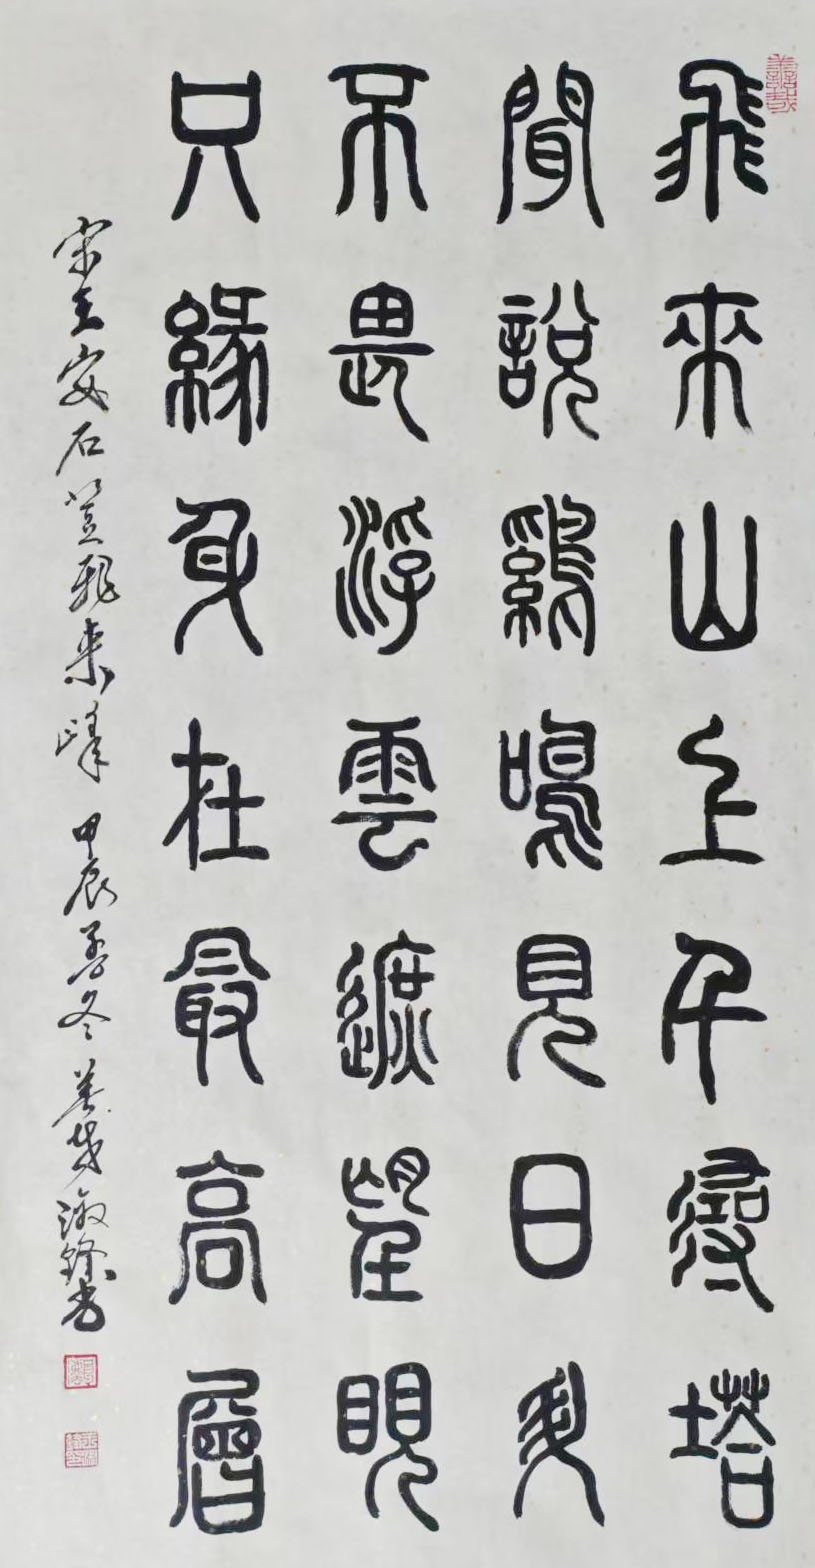 飛來山上千尋塔
聞說鷄鳴見日升
不畏浮雲遮望眼
只緣身在最高層
宋王安石登飛來峰 甲辰孟冬 書